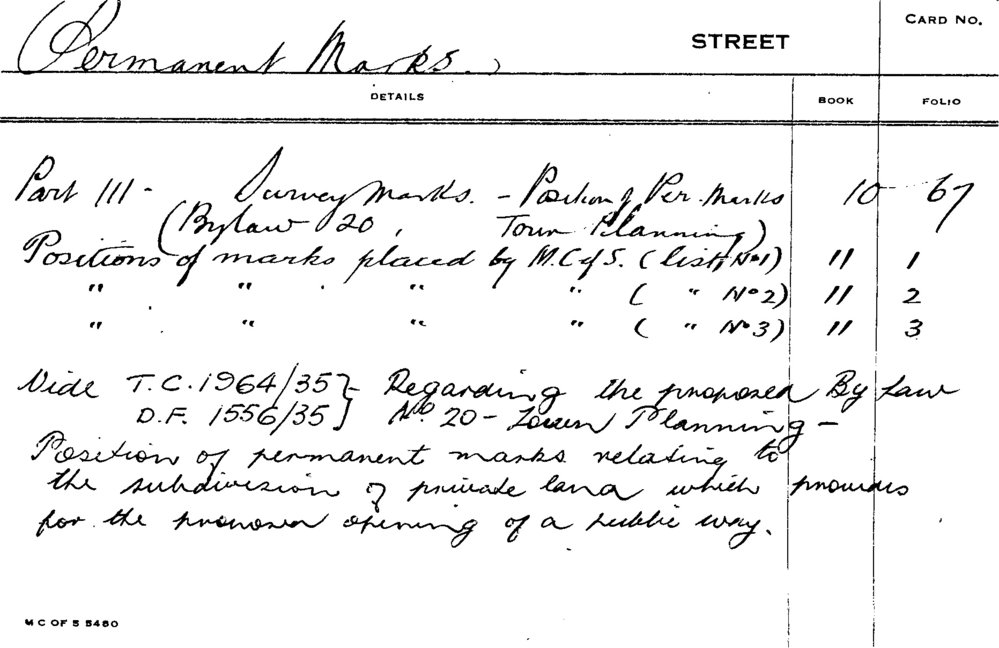 CARD NO.
(Permanent Marks.) STREET
DETAILS BOOK FOLIO
Part III - Survey Marks. - Position of Per. Marks 10 67
(Bylaw 20, Town Planning)
Positions of marks placed by M.C of S. (list No 1) 11 1
" " " " ( " No 2) 11 2
" " " " ( " No 3) 11 3
Vide T.C. 1964/35 } - Regarding the proposed By Law
D.F. 1556/35 } No. 20 - Town Planning -
Position of permanent marks relating to
the subdivision of private land which provides
for the proposed opening of a public way.
M C OF S 5480